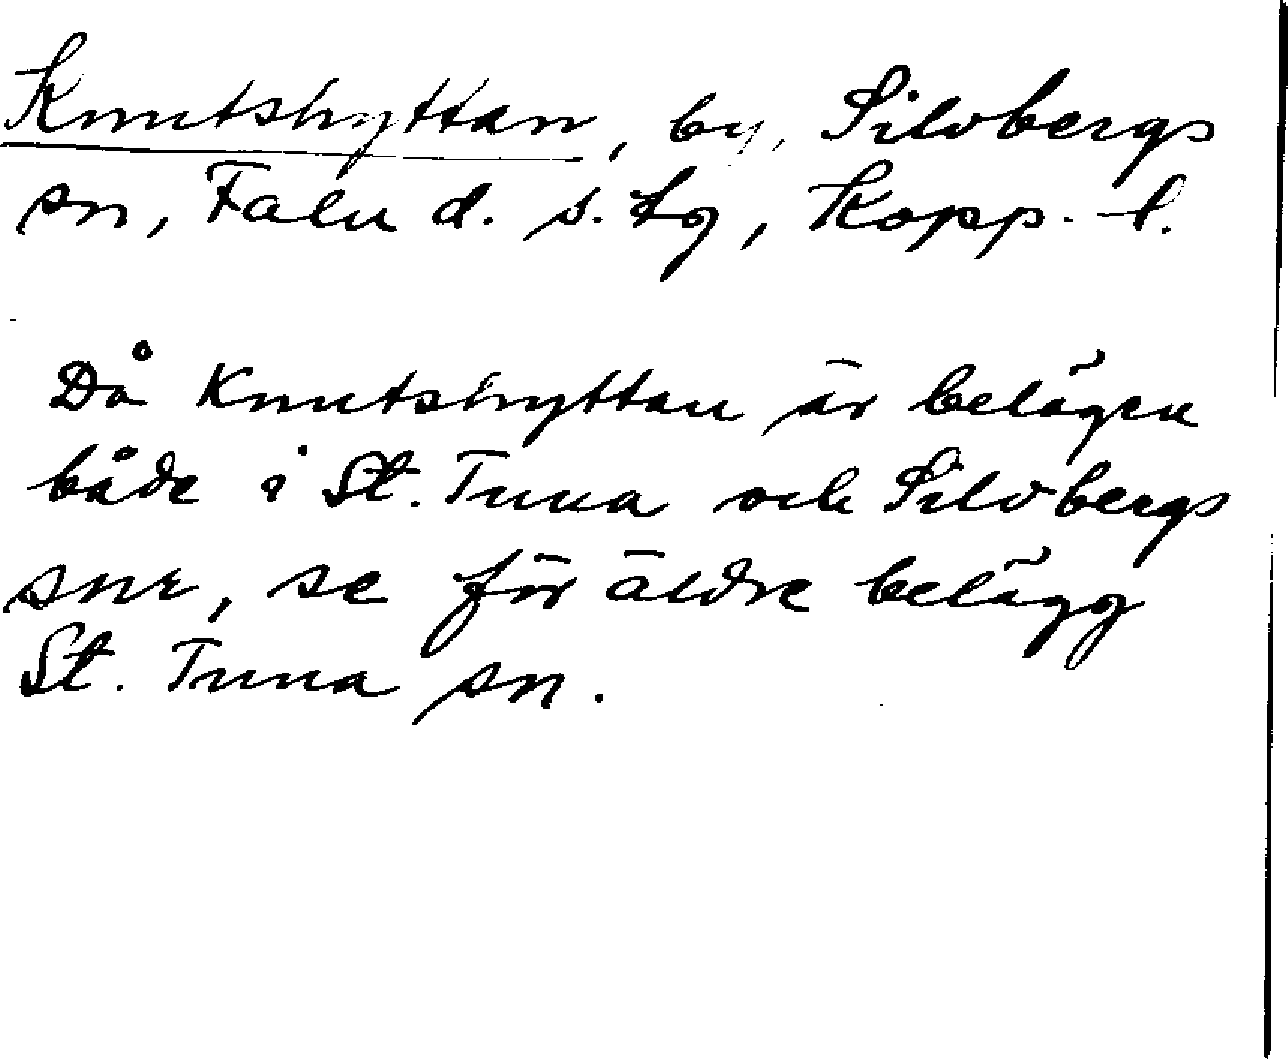 Knutshyttan, by, Silvbergs
sn, Falu d. s. tg, Kopp. l.
Då Knutshyttan är belägen
både i St. Tuna och Silvbergs
snr, se för äldre belägg
St. Tuna sn.